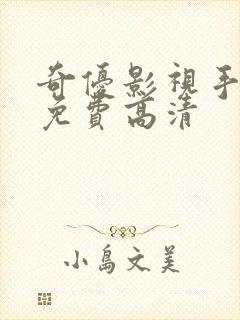 奇優影視手
免費高清
小島文美